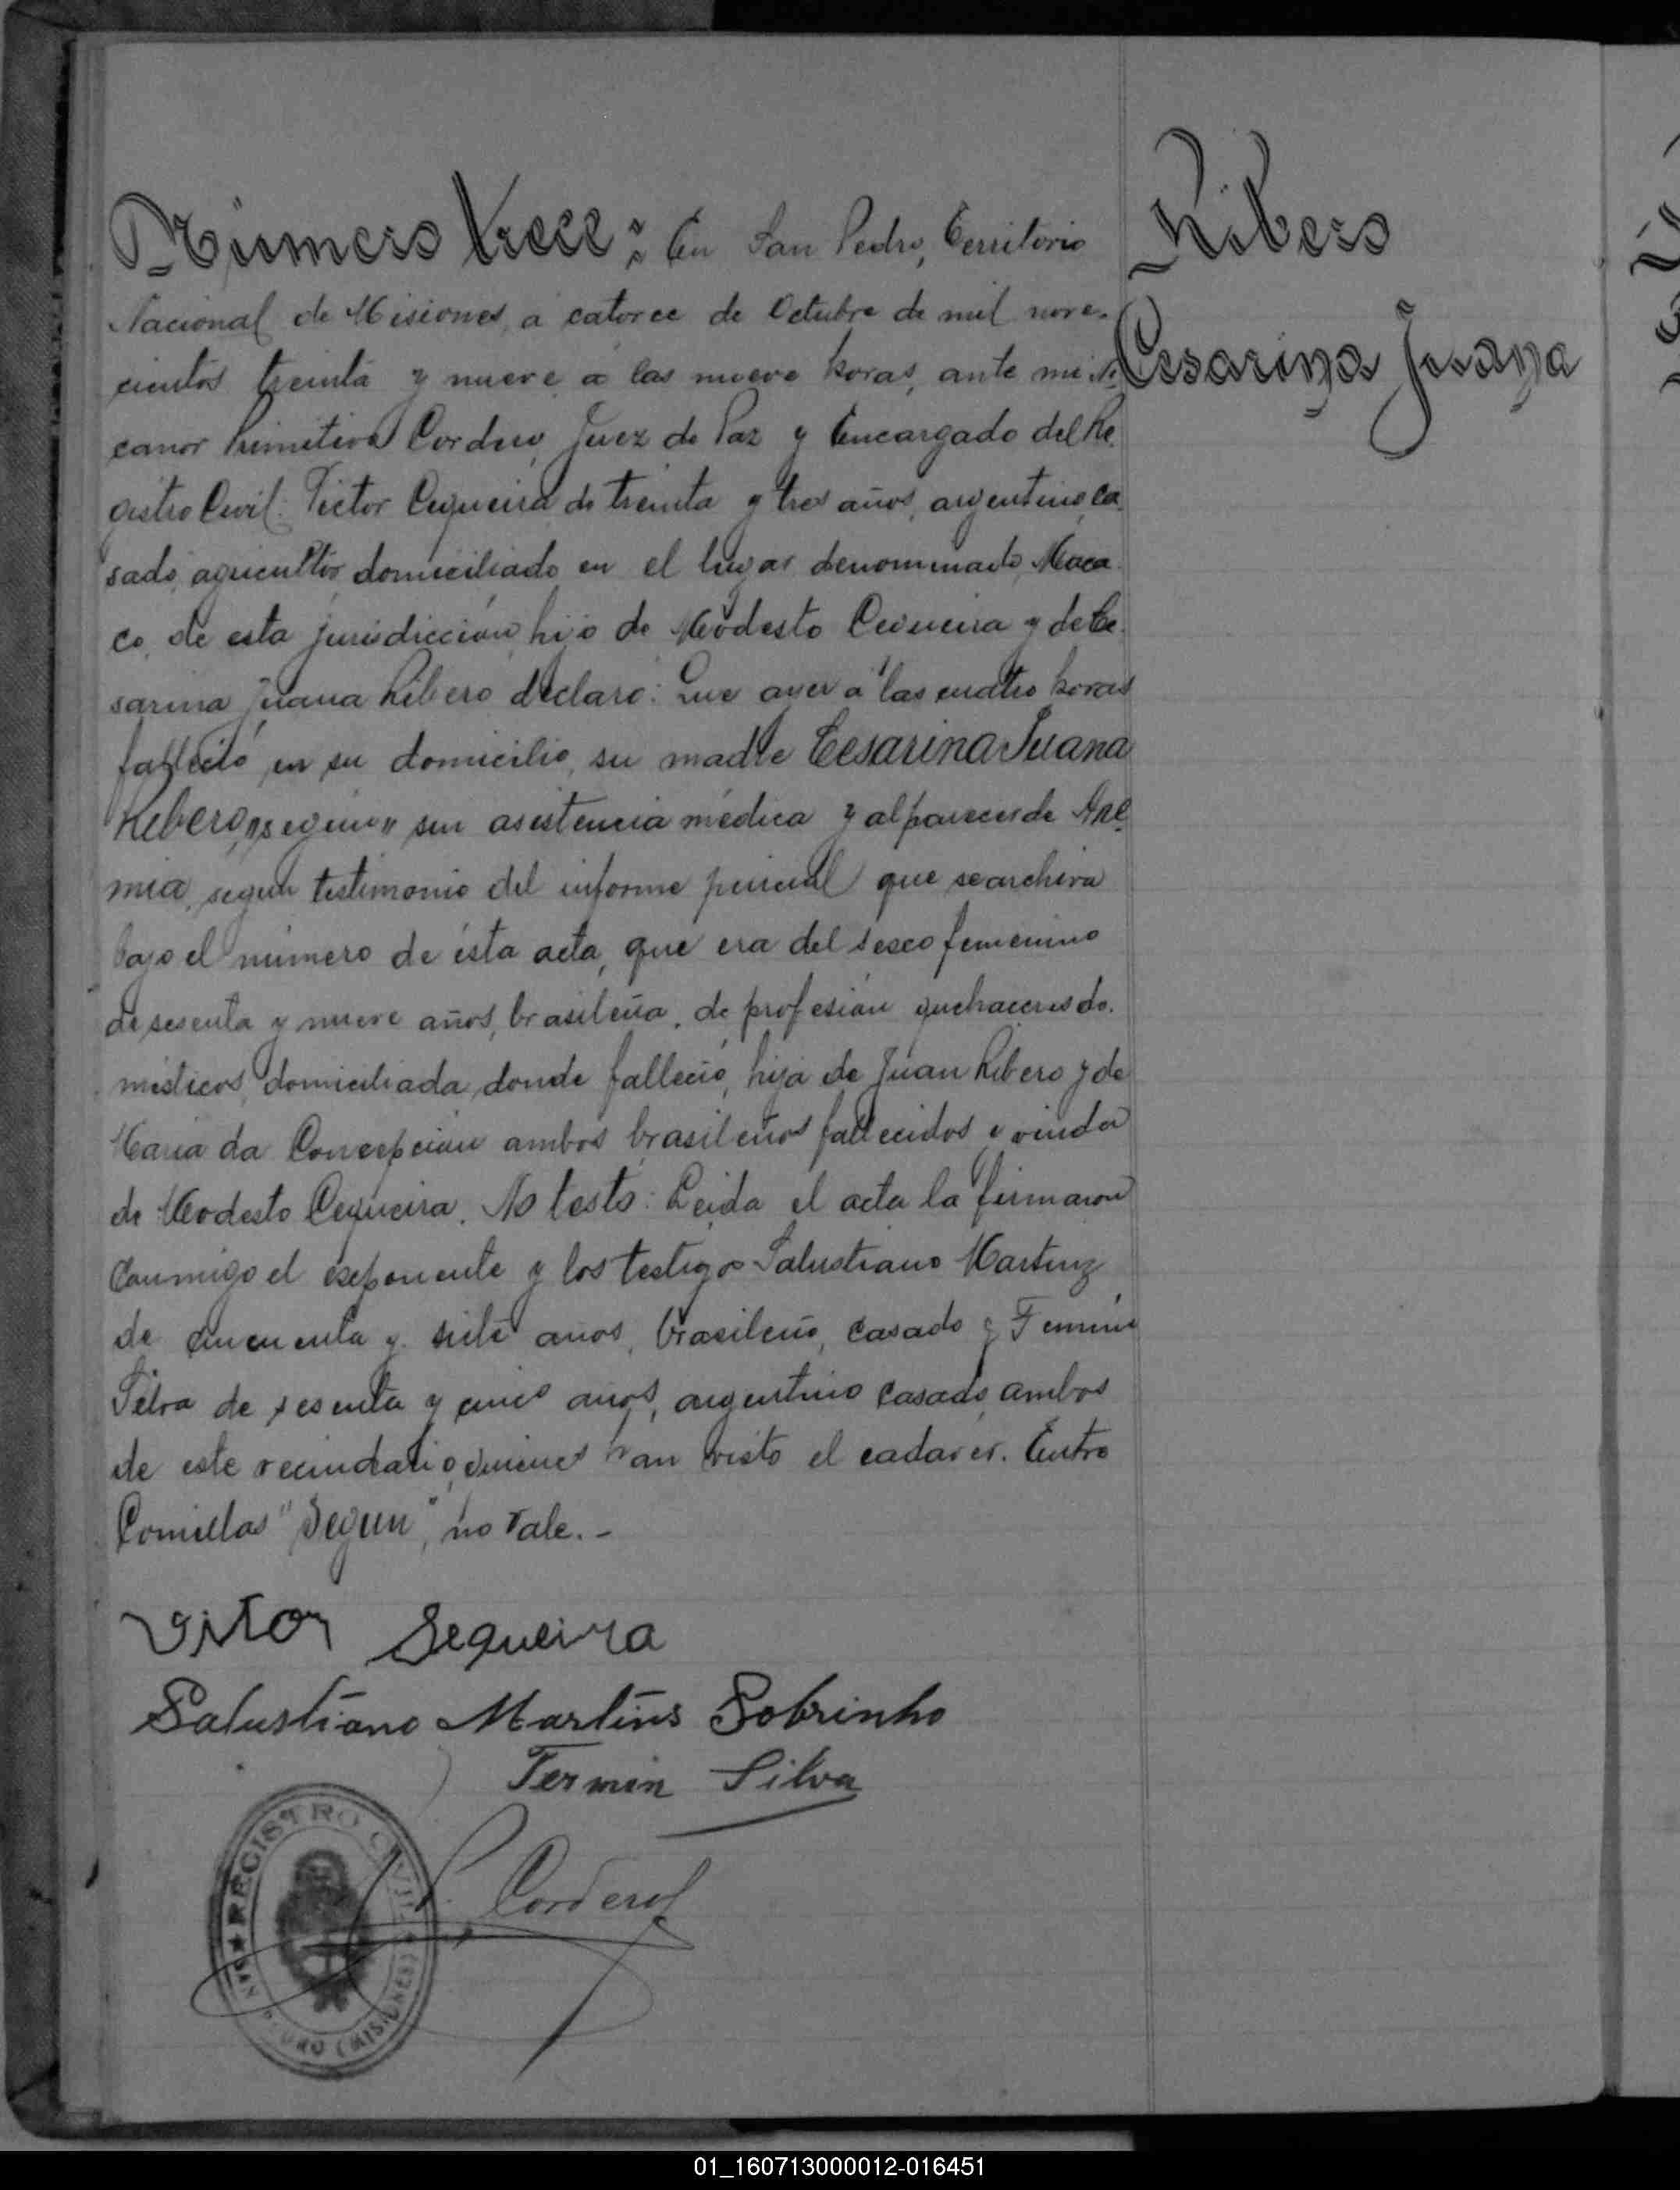 Número trece: En San Pedro, Territorio
Nacional de Misiones, a catorce de Octubre de mil nove-
cientos treinta y nueve a las nueve horas, ante mi Ni-
canor Primitivo Cordero, Juez de Paz y Encargado del Re-
gistro Civil: Victor Cequeira de treinta y tres años, argentino, ca-
sado, agricultor, domiciliado en el lugar denominado, Maca-
co, de esta jurisdicción, hijo de Modesto Cequeira y de Ce-
sarina Juana Ribero declaró: Que ayer a las cuatro horas
falleció en su domicilio, su madre Cesarina Juana
Ribero, "según" sin asistencia médica y al parecer de Ane-
mia, según testimonio del informe pericial que se archiva
bajo el número de ésta acta, que era del sexo femenino
de sesenta y nueve años, brasileña, de profesión quehaceres do-
mésticos, domiciliada donde falleció, hija de Juan Ribero y de
Maria da Concepción ambos brasileños fallecidos y viuda
de Modesto Cequeira. No testó: Leida el acta la firmaron
conmigo el exponente y los testigos Salustiano Martinz
de cincuenta y siete años, brasileño, casado y Fermin
Silva de sesenta y cinco años, argentino casado, ambos
de este vecindario, quienes han visto el cadaver. Entre
Comillas "Segun", no vale.-
Vitor Sequeira
Salustiano Martins Sobrinho
Fermin Silva
P. Cordero
REGISTRO CIVIL
SAN PEDRO (MISIONES)
Ribero
Cesarina Juana
01_160713000012-016451